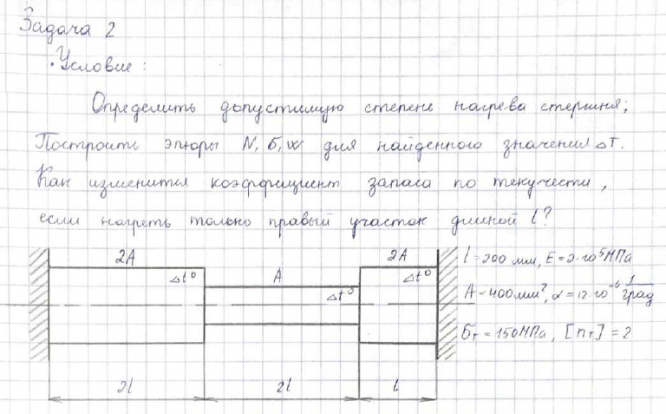 Задача 2
· Условие :
Определить допустимую степень нагрева стержня;
Построить эпюры N, σ, w для найденного значения ΔT.
Как изменится коэффициент запаса по текучести,
если нагреть только правый участок длиной l?
2A A 2A
Δt° Δt° Δt°
l=200 мм, E=2·10⁵МПа
A=400мм², α=12·10⁻⁶ 1/град
σт=150МПа, [nт]=2
2l 2l l